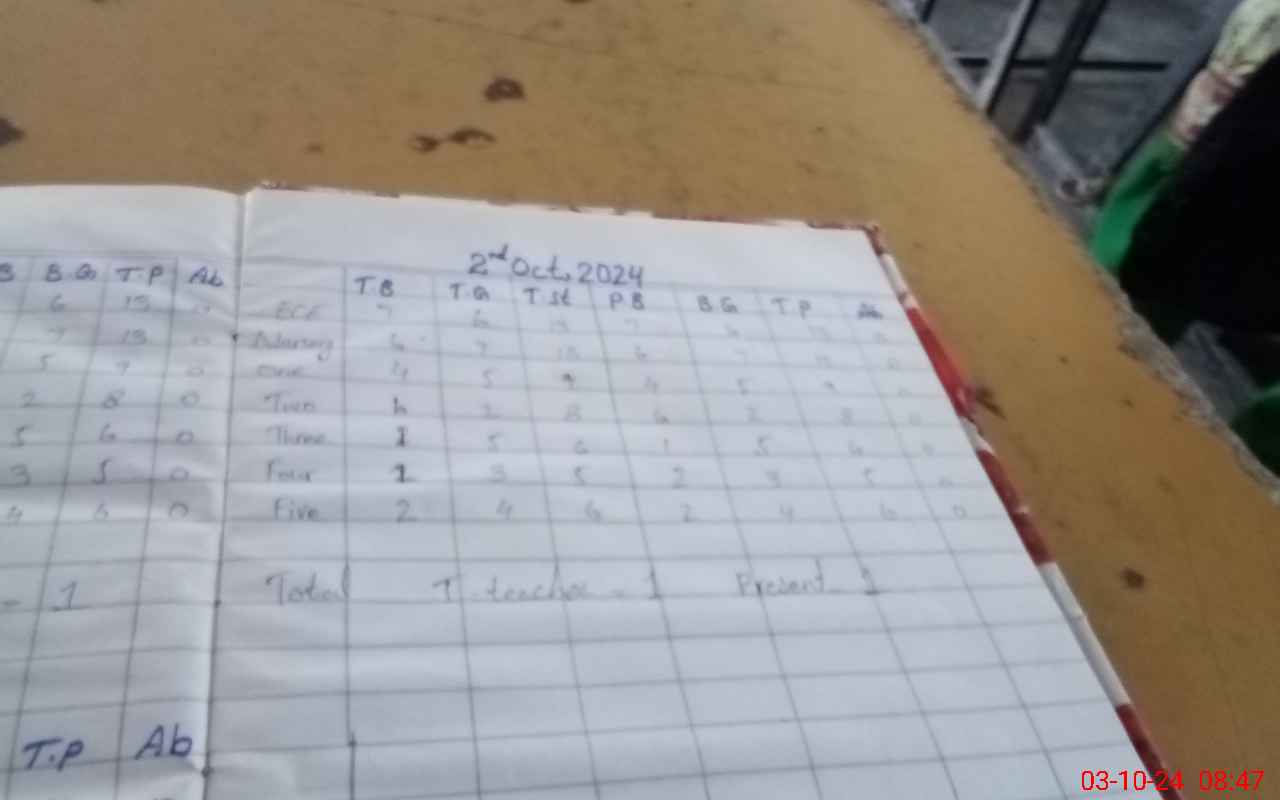 2nd Oct. 2024
B B.G T.P Ab
T.B T.G T.St P.B B.G T.P Ab
6 13
ECE 7 6 13 7 6 13 0
7 13 0
Nursery 6 7 13 6 7 13 0
5 9 0
One 4 5 9 4 5 9 0
2 8 0
Two 6 2 8 6 2 8 0
5 6 0
Three 1 5 6 1 5 6 0
3 5 0
Four 3 5 2 3 5
4 6 0
Five 2 4 6 2 4 6 0
- 1
Total T.teacher - 1 Present - 1
T.P Ab
03-10-24 08:47